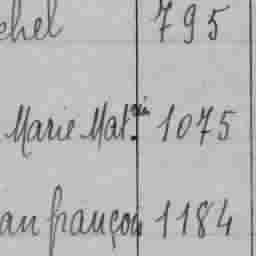 chel 795
Marie Mat.rie 1075
an françois 1184